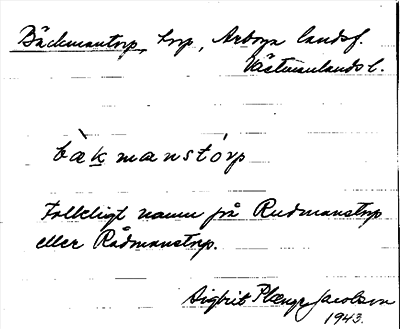 Bäckmantorp, torp, Arboga landsf.
Västmanlands l.
bæ̀kmanstórp
Folkligt namn på Rudmanstorp
eller Rådmanstorp.
Sigbrit Plænge Jacobson
1943.